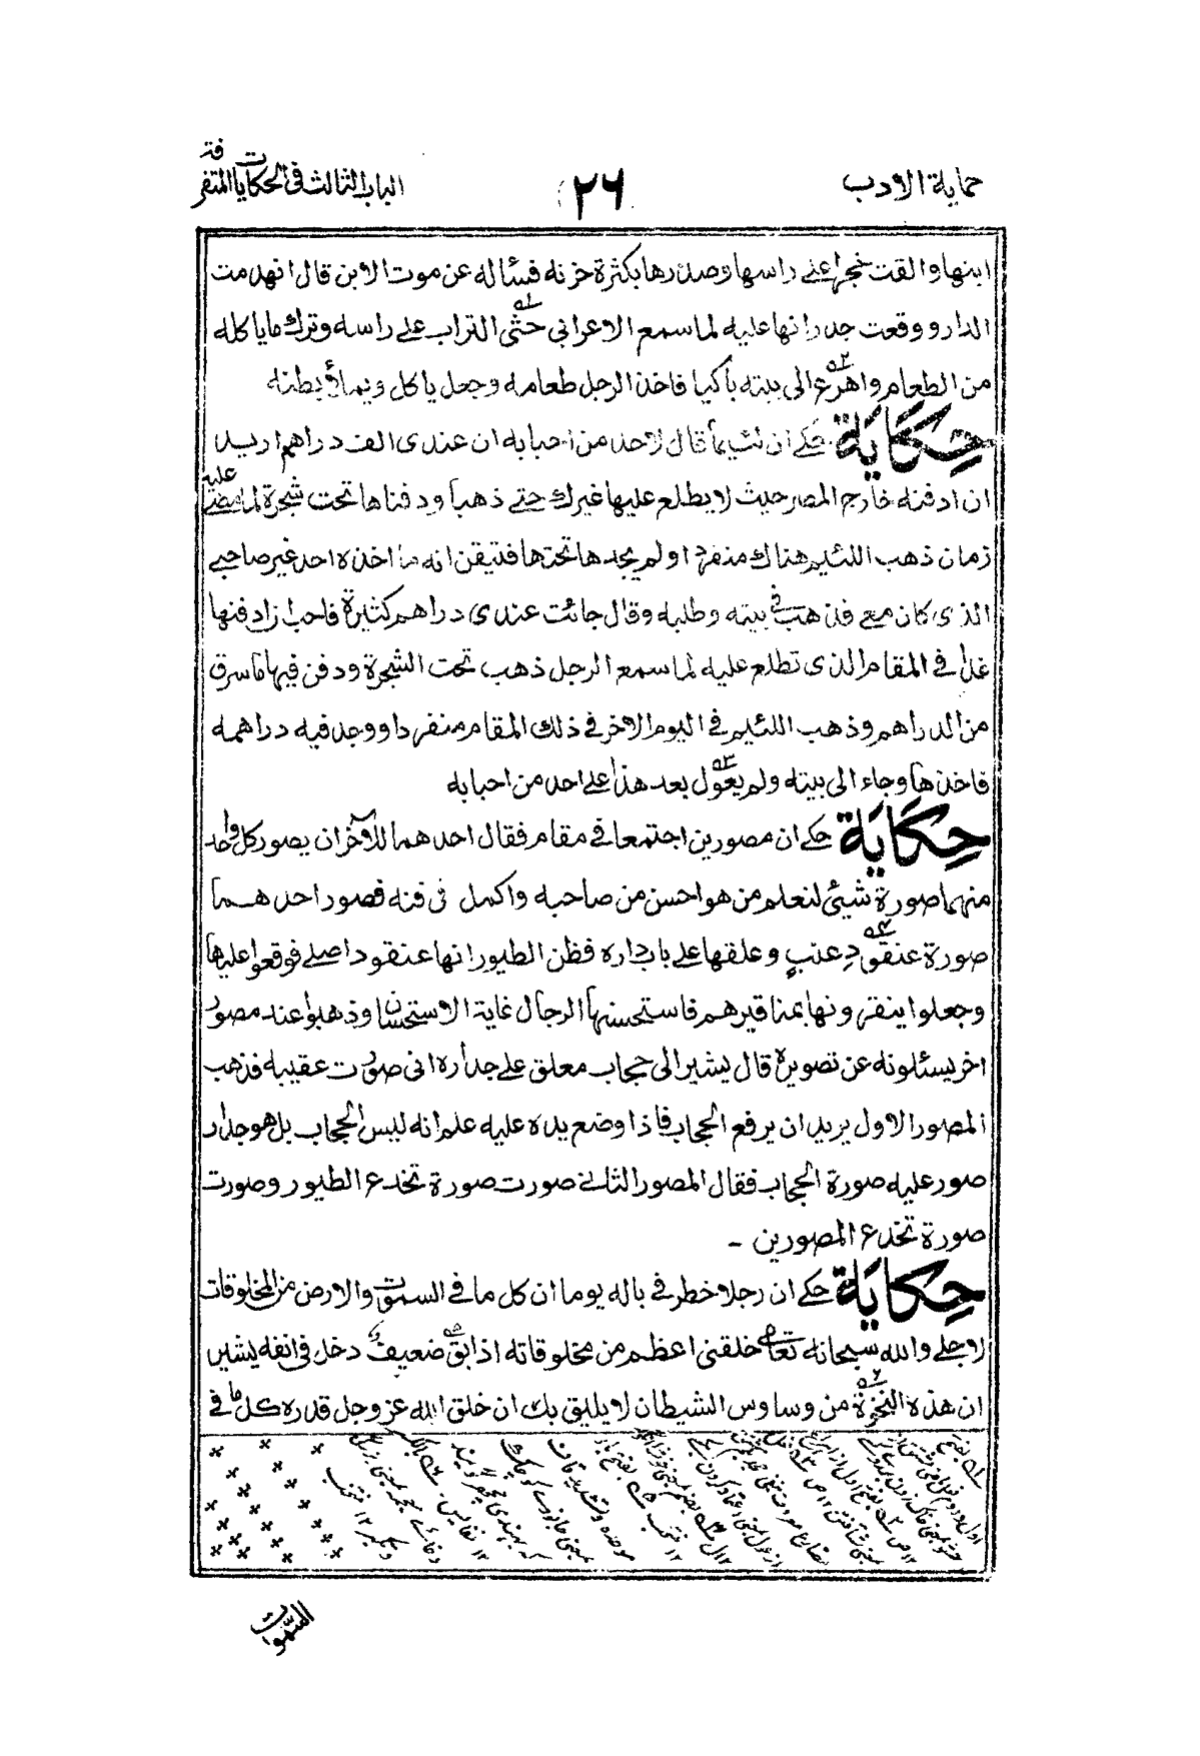 حماية الادب
٢٦
الباب الثالث فى الحكايات المتفرقة
ابنها والقت خنجرا على راسها وصدرها بكثرة حزنه فسئاله عن موت الابن قال انهدمت
الدار ووقعت جدرانها عليه لما سمع الاعرابى حثى التراب على راسه وترك ما ياكله
من الطعام واهرع الى بيته باكيا فاخذ الرجل طعامه وجعل ياكل ويملأ بطنه
حِكَايَة حكى ان لئيما قال لاحد من احبابه ان عندى الف دراهم اريد
ان ادفنه خارج المصر حيث لا يطلع عليها غيرك حتى ذهبا ودفناها تحت شجرة لما مضى عليه
زمان ذهب اللئيم هناك منفردا ولم يجدها تحتها فتيقن انه ما اخذه احد غير صاحبى
الذى كان معى فذهب فى بيته وطلبه وقال جائت عندى دراهم كثيرة فاحب ان ادفنها
غدا فى المقام الذى تطلع عليه لما سمع الرجل ذهب تحت الشجرة ودفن فيها ما سرق
من الدراهم وذهب اللئيم فى اليوم الاخر فى ذلك المقام منفردا ووجد فيه دراهمه
فاخذها وجاء الى بيته ولم يعوّل بعد هذا على احد من احبابه
حِكَايَة حكى ان مصورين اجتمعا فى مقام فقال احدهما للآخر ان يصور كل واحد
منهما صورة شيئى لنعلم من هو احسن من صاحبه واكمل فى فنه فصور احدهما
صورة عنقودِ عنبٍ وعلقها على باب داره فظن الطيور انها عنقود اصلى فوقعوا عليها
وجعلوا ينقرونها بمناقيرهم فاستحسنها الرجال غاية الاستحسان وذهبوا عند مصور
اخر يسئلونه عن تصويره قال يشير الى حجاب معلق على جداره انى صورت عقيبه فذهب
المصور الاول يريد ان يرفع الحجاب فاذا وضع يده عليه علم انه ليس الحجاب بل هو جدار
صور عليه صورة الحجاب فقال المصور الثانى صورت صورة تخدع الطيور وصورت
صورة تخدع المصورين -
حِكَايَة حكى ان رجلا خطر فى باله يوما ان كل ما فى السموت والارض من المخلوقات
لاجلى والله سبحانه تعالى خلقنى اعظم من مخلوقاته اذا بق ضعيف دخل فى انفه يشير
ان هذه النخوة من وساوس الشيطان لا يليق بك ان خلق الله عز وجل قدره كل ما فى